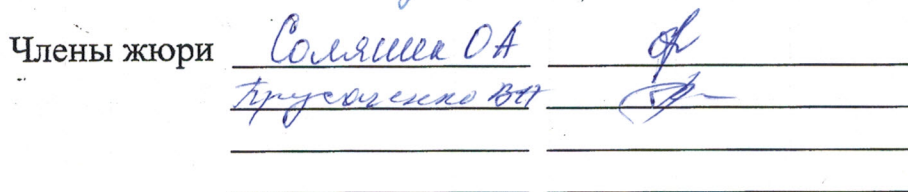 Члены жюри Соляник ОА
Прусаченко ВН